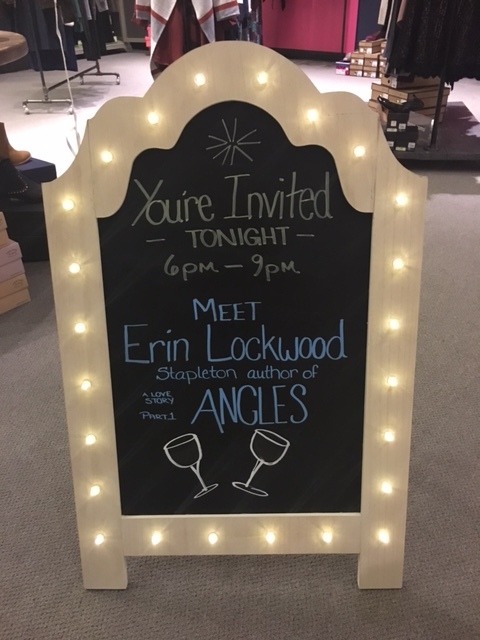 You're Invited
— TONIGHT —
6pm — 9pm
MEET
Erin Lockwood
Stapleton author of
A LOVE
STORY
PART.1
ANGLES